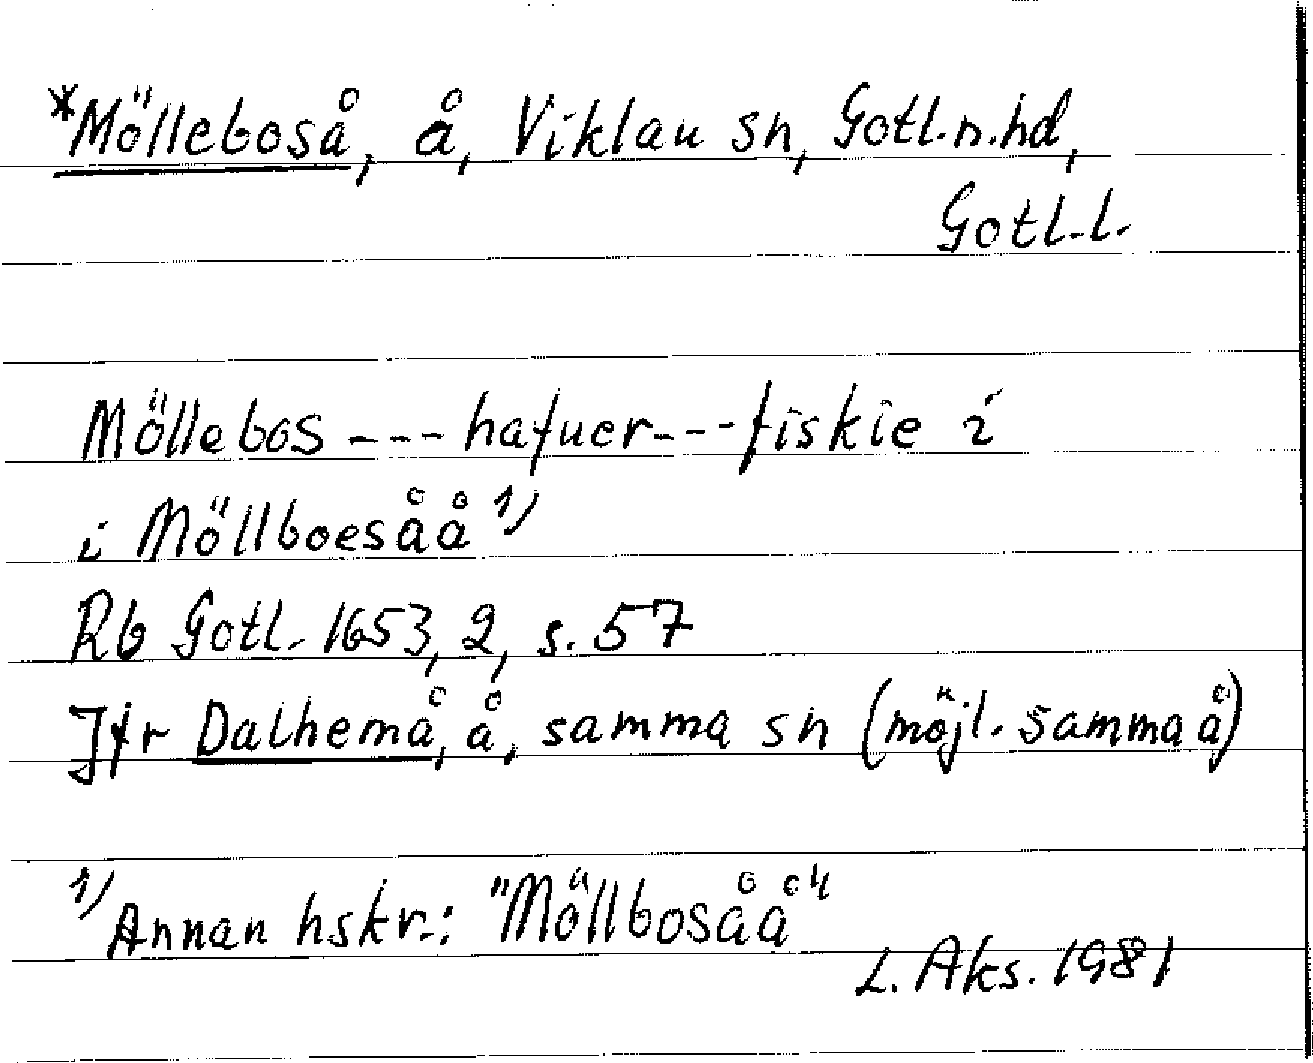 *Mölleboså, å, Viklau sn, Gotl.n.hd,
Gotl.l.
Möllebos --- hafuer---fiskie i
i Möllboesåå 1)
Rb Gotl. 1653, 2, s. 57
Jfr Dalhemå, å, samma sn (möjl. samma å)
1) Annan hskr.: "Möllbosåå"
L. Aks. 1981